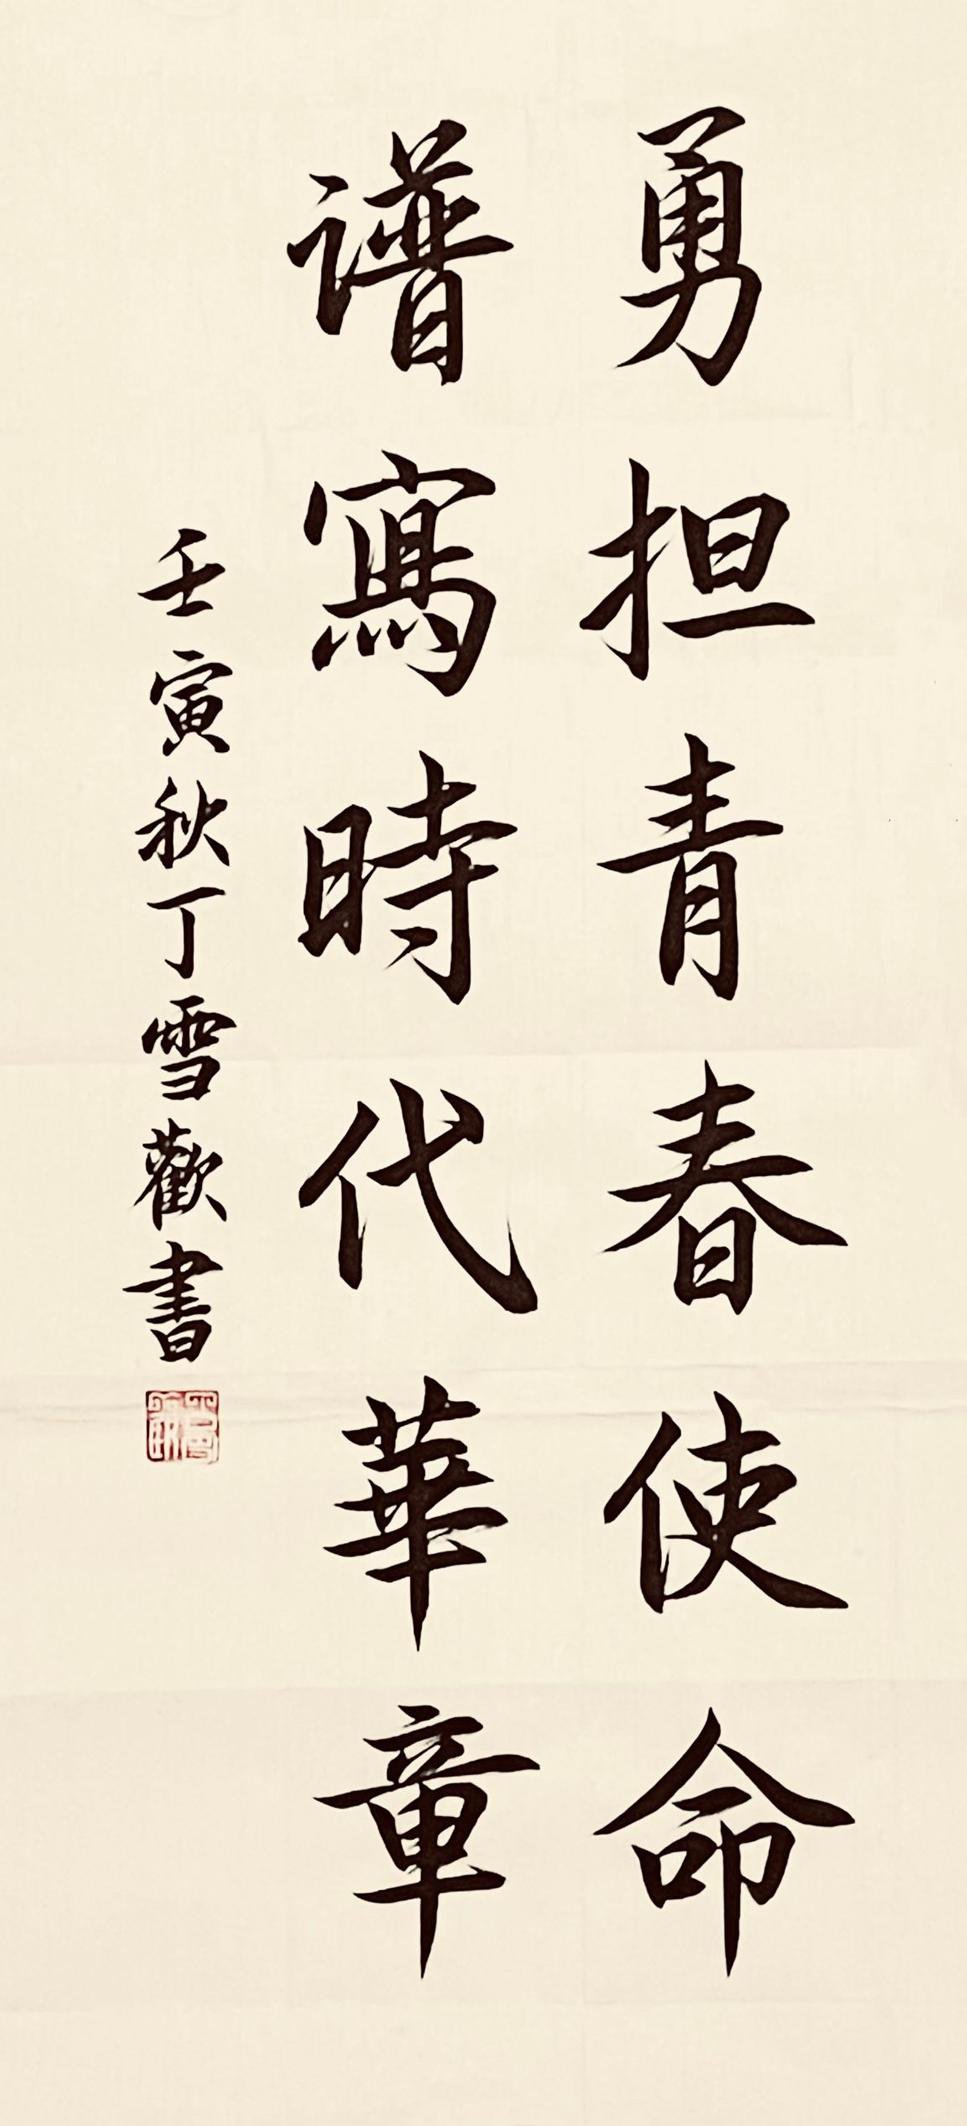 勇担青春使命
谱寫時代華章
壬寅秋丁雪歡書